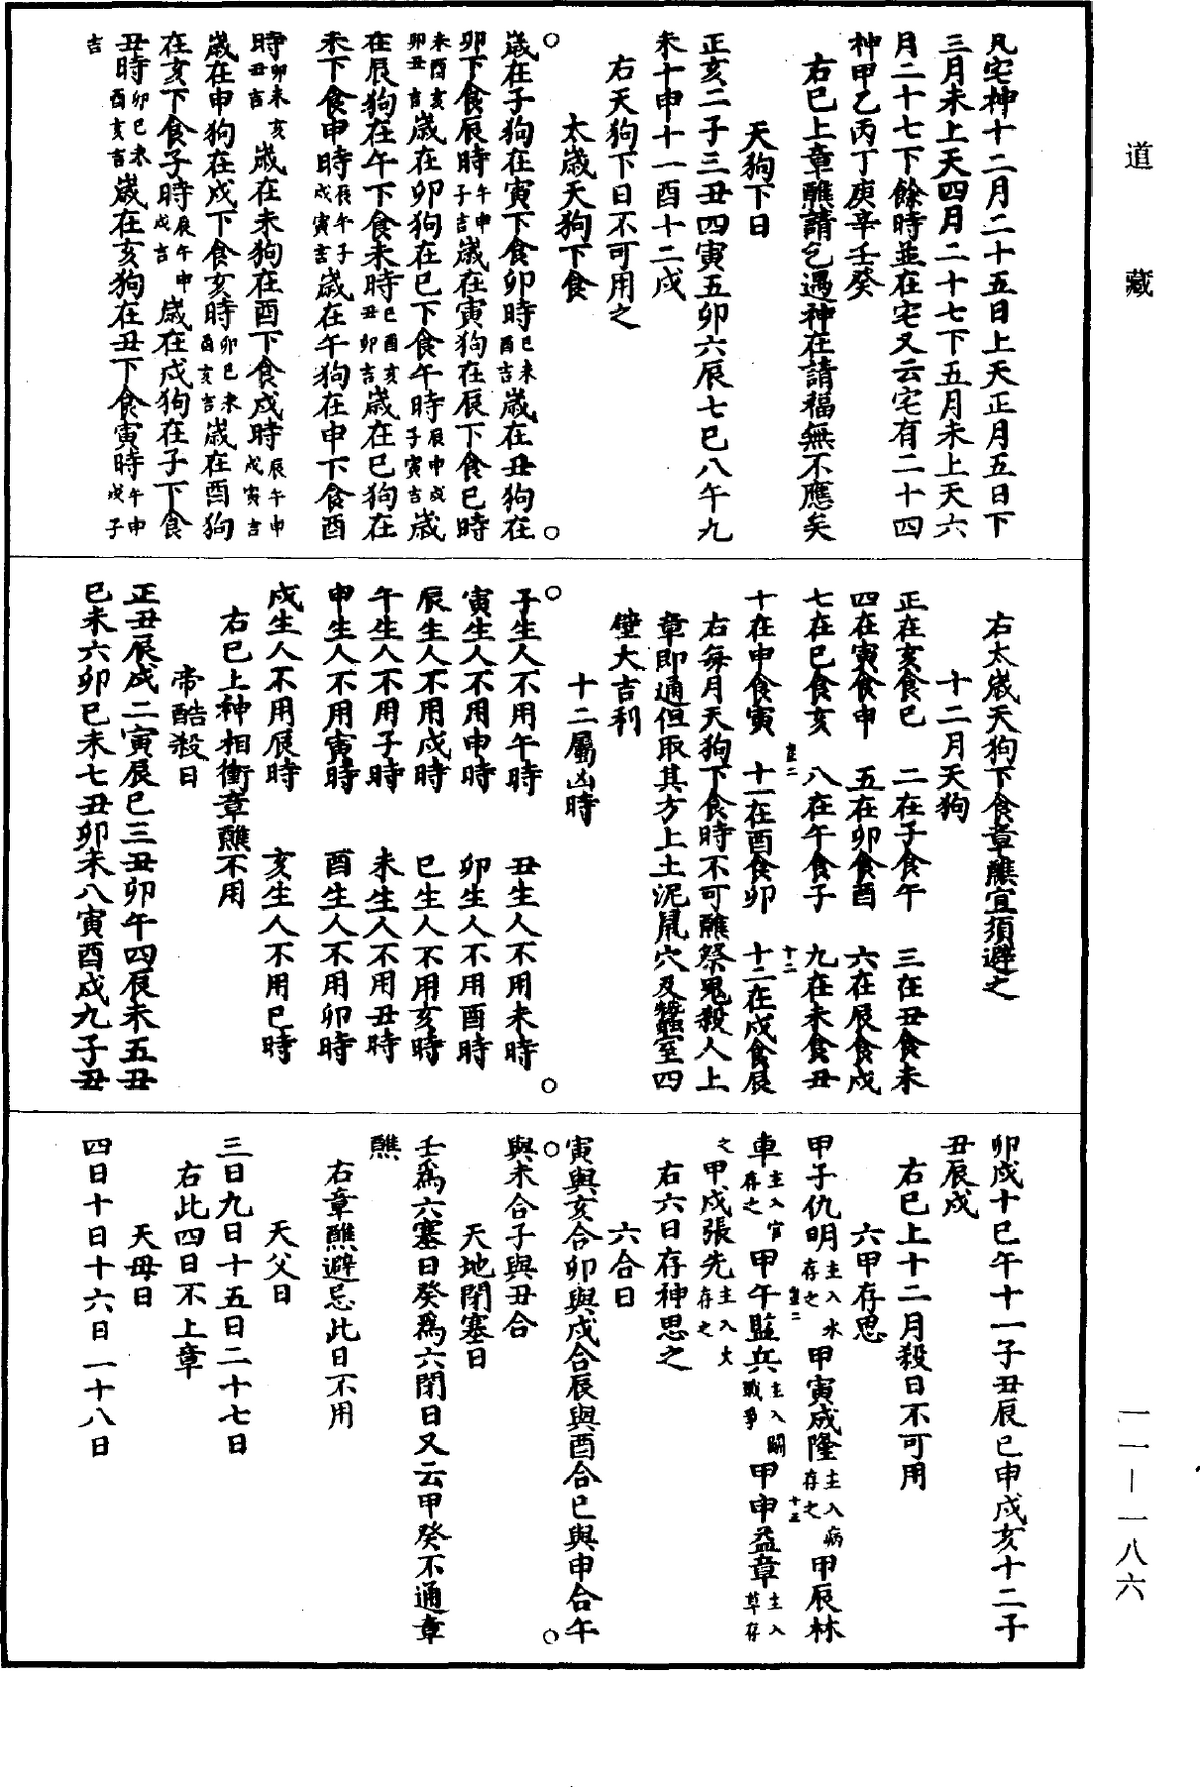 道藏
一一—一八六
凡宅神十二月二十五日上天正月五日下
三月未上天四月二十七下五月未上天六
月二十七下餘時並在宅又云宅有二十四
神甲乙丙丁庚辛壬癸
右已上章醮請乞遇神在請福無不應矣
天狗下日
正亥二子三丑四寅五卯六辰七巳八午九
未十申十一酉十二戌
右天狗下日不可用之
太歲天狗下食
歲在子狗在寅下食卯時巳未酉吉歲在丑狗在
卯下食辰時午申子吉歲在寅狗在辰下食巳時
未酉亥卯丑吉歲在卯狗在巳下食午時辰申戌子寅吉歲
在辰狗在午下食未時巳酉亥丑卯吉歲在巳狗在
未下食申時辰午子戌寅吉歲在午狗在申下食酉
時卯未亥丑吉歲在未狗在酉下食戌時辰午申戌寅吉
歲在申狗在戌下食亥時卯巳未酉亥吉歲在酉狗
在亥下食子時辰午申戌吉歲在戌狗在子下食
丑時卯巳未酉亥吉歲在亥狗在丑下食寅時午申戌子
吉
右太歲天狗下食章醮宜須避之
十二月天狗
正在亥食巳 二在子食午 三在丑食未
四在寅食申 五在卯食酉 六在辰食戌
七在巳食亥 八在午食子 九在未食丑
十在申食寅 十一在酉食卯 十二在戌食辰
右每月天狗下食時不可醮祭鬼殺人上
章即通但取其方上土泥鼠穴及蠶室四
壁大吉利
十二屬凶時
子生人不用午時 丑生人不用未時
寅生人不用申時 卯生人不用酉時
辰生人不用戌時 巳生人不用亥時
午生人不用子時 未生人不用丑時
申生人不用寅時 酉生人不用卯時
戌生人不用辰時 亥生人不用巳時
右已上神相衝章醮不用
帝酷殺日
正丑辰戌二寅辰巳三丑卯午四辰未五丑
巳未六卯巳未七丑卯未八寅酉戌九子丑
卯戌十巳午十一子丑辰巳申戌亥十二子
丑辰戌
右已上十二月殺日不可用
六甲存思
甲子仇明主入水存之甲寅成隆主入病存之甲辰林
車主入官存之甲午監兵主入鬭戰爭甲申益章主入草存
之甲戌張先主入火存之
右六日存神思之
六合日
寅與亥合卯與戌合辰與酉合巳與申合午
與未合子與丑合
天地閉塞日
壬爲六塞日癸爲六閉日又云甲癸不通章
醮
右章醮避忌此日不用
天父日
三日九日十五日二十七日
右此四日不上章
天母日
四日十日十六日一十八日